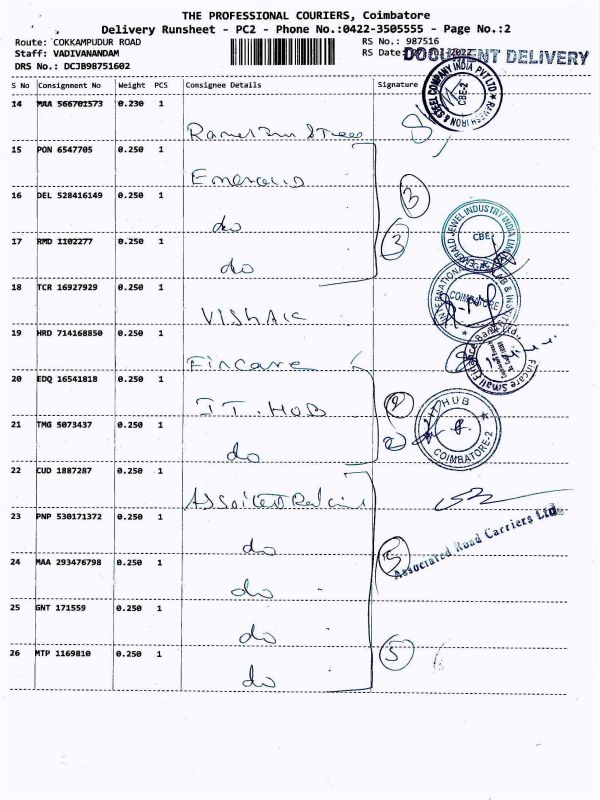 THE PROFESSIONAL COURIERS, Coimbatore
Delivery Runsheet - PC2 - Phone No.:0422-3505555 - Page No.:2
Route: COKKAMPUDUR ROAD
RS No.: 987516
Staff: VADIVANANDAM
RS Date:
DOCUMENT DELIVERY
DRS No.: DCJB98751602
S No Consignment No Weight PCS Consignee Details Signature
14 MAA 566701573 0.230 1
15 PON 6547705 0.250 1 Emerald
16 DEL 528416149 0.250 1 do
17 RMD 1102277 0.250 1 do
3
3
18 TCR 16927929 0.250 1 VISHAK
19 HRD 714168850 0.250 1 Fincare
20 EDQ 16541818 0.250 1 IT. HUB
21 TMG 5073437 0.250 1 do
2
2
22 CUD 1887287 0.250 1
23 PNP 530171372 0.250 1 do
24 MAA 293476798 0.250 1 do
25 GNT 171559 0.250 1 do
26 MTP 1169810 0.250 1 do
5
5
RAMESH IRON & STEEL COMPANY INDIA PVT LTD
CBE-2
EMERALD JEWEL INDUSTRY INDIA LIMITED
CBE
INTERNATIONAL
COIMBATORE
Fincare Small Finance Bank Ltd.
IT HUB
COIMBATORE-2
Associated Road Carriers Ltd.